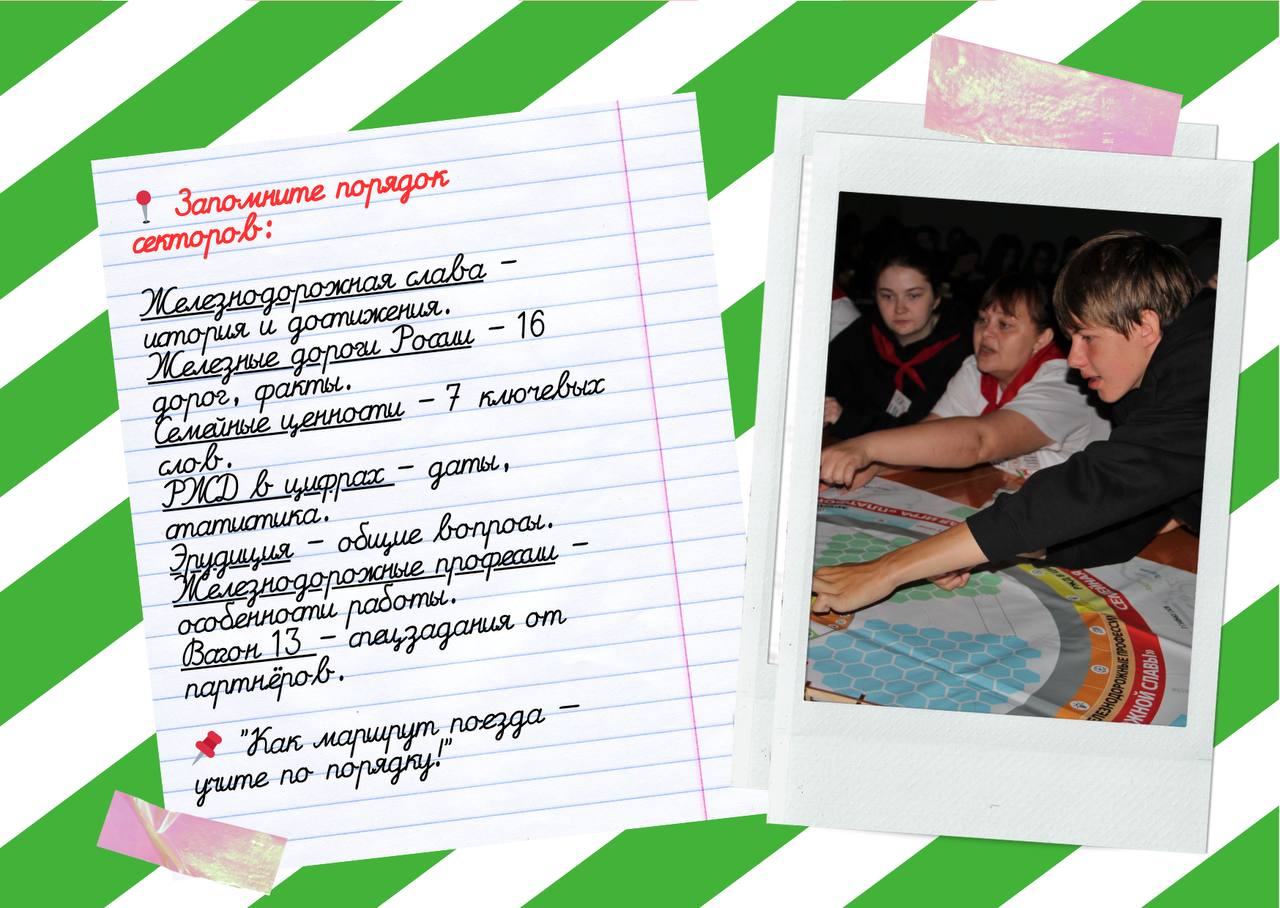 Запомните порядок
секторов:
Железнодорожная слава –
история и достижения.
Железные дороги России – 16
дорог, факты.
Семейные ценности – 7 ключевых
слов.
РЖД в цифрах – даты,
статистика.
Эрудиция – общие вопросы.
Железнодорожные профессии –
особенности работы.
Вагон 13 – спецзадания от
партнёров.
"Как маршрут поезда –
учите по порядку!"
АЯ ИГРА «ПЛАТ
РЖД В
СЕМЕЙНАЯ
ЛЕЗНОДОРОЖНЫЕ ПРОФЕССИ
ЖНОЙ СЛАВЫ»